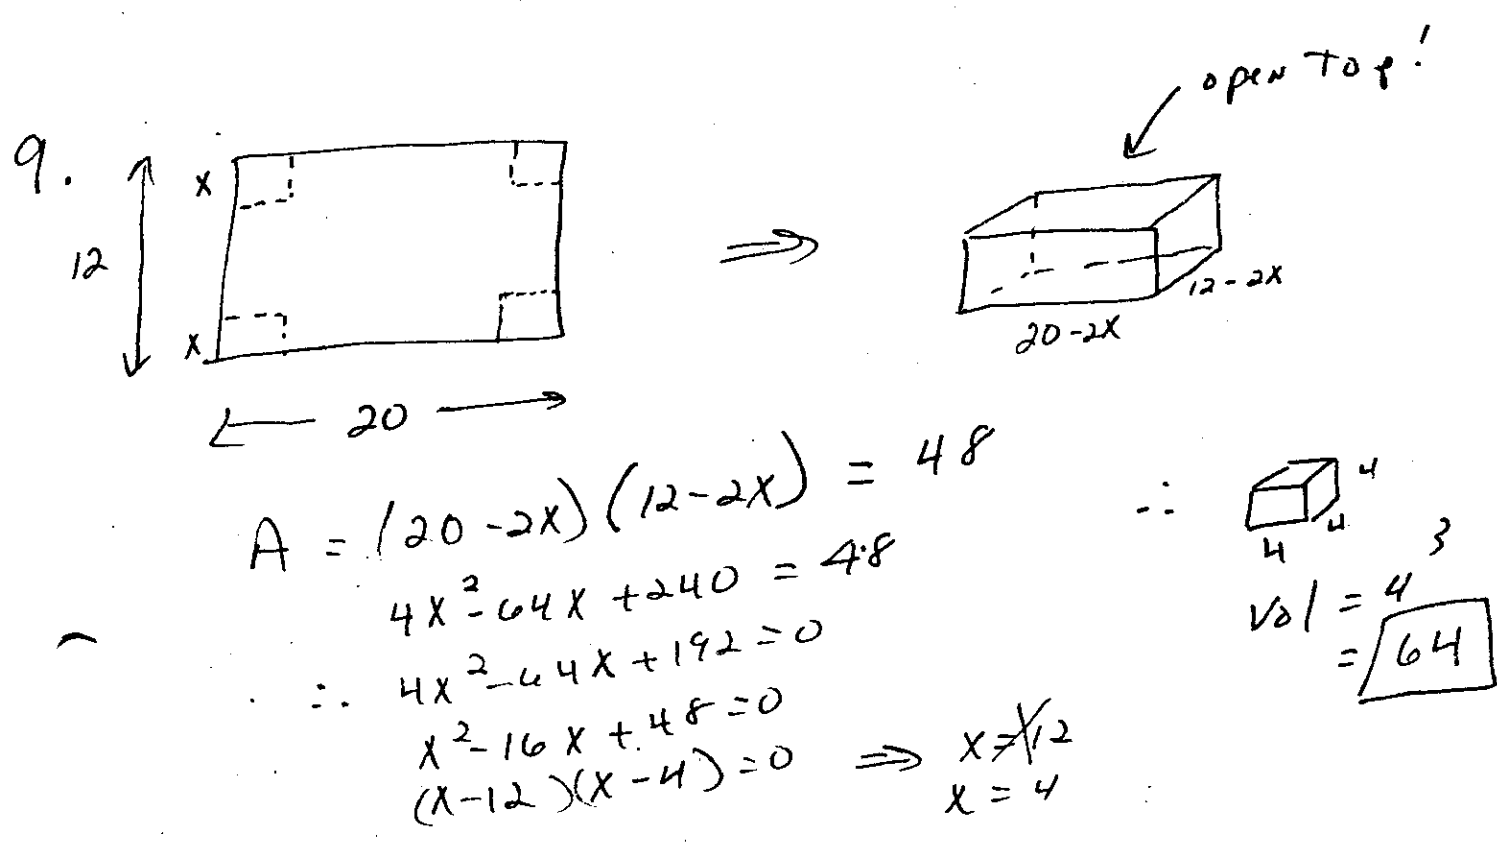 9.
open top!
x
12
x
20
20-2x
12-2x
A = (20-2x)(12-2x) = 48
4x²-64x+240 = 48
∴ 4x²-64x+192=0
x²-16x+48=0
(x-12)(x-4)=0 ⇒ x=12
x=4
∴
4
4
4
vol = 4³
= 64